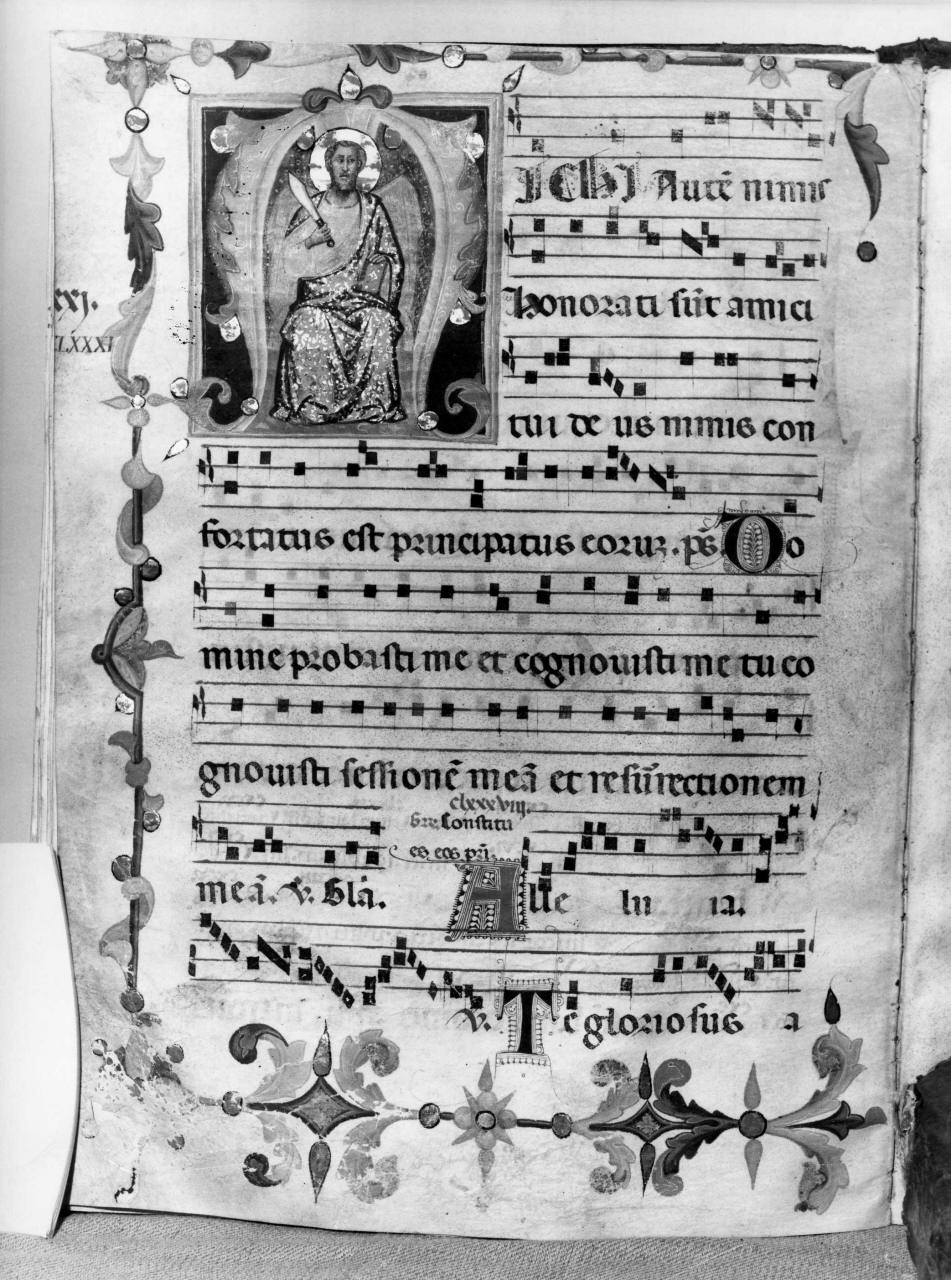 xxj.
LXXXI
MIChI Autē nimis
honorati sūt amici
tui de us nimis con
fortatus est principatus eoruz. ps̄. Do
mine probasti me et cognouisti me tu co
gnouisti sessionē meā et resurrectionem
clxxxviij.
Gre. Constitu
es eos pri.
meā. v. Glā. Alle lu ia.
v. Te gloriosus a